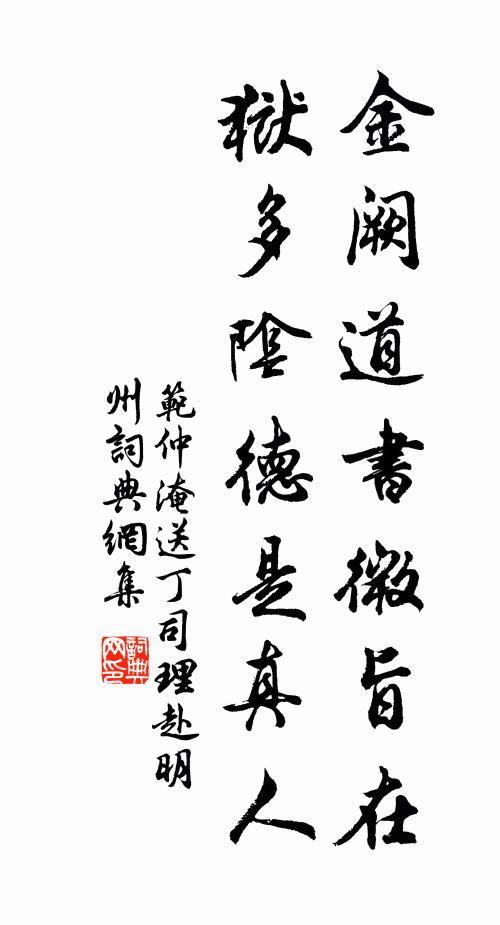 金阙道書微旨在
獄多陰德是真人
範仲淹送丁司理赴明
州詞典網集
詞典
网印